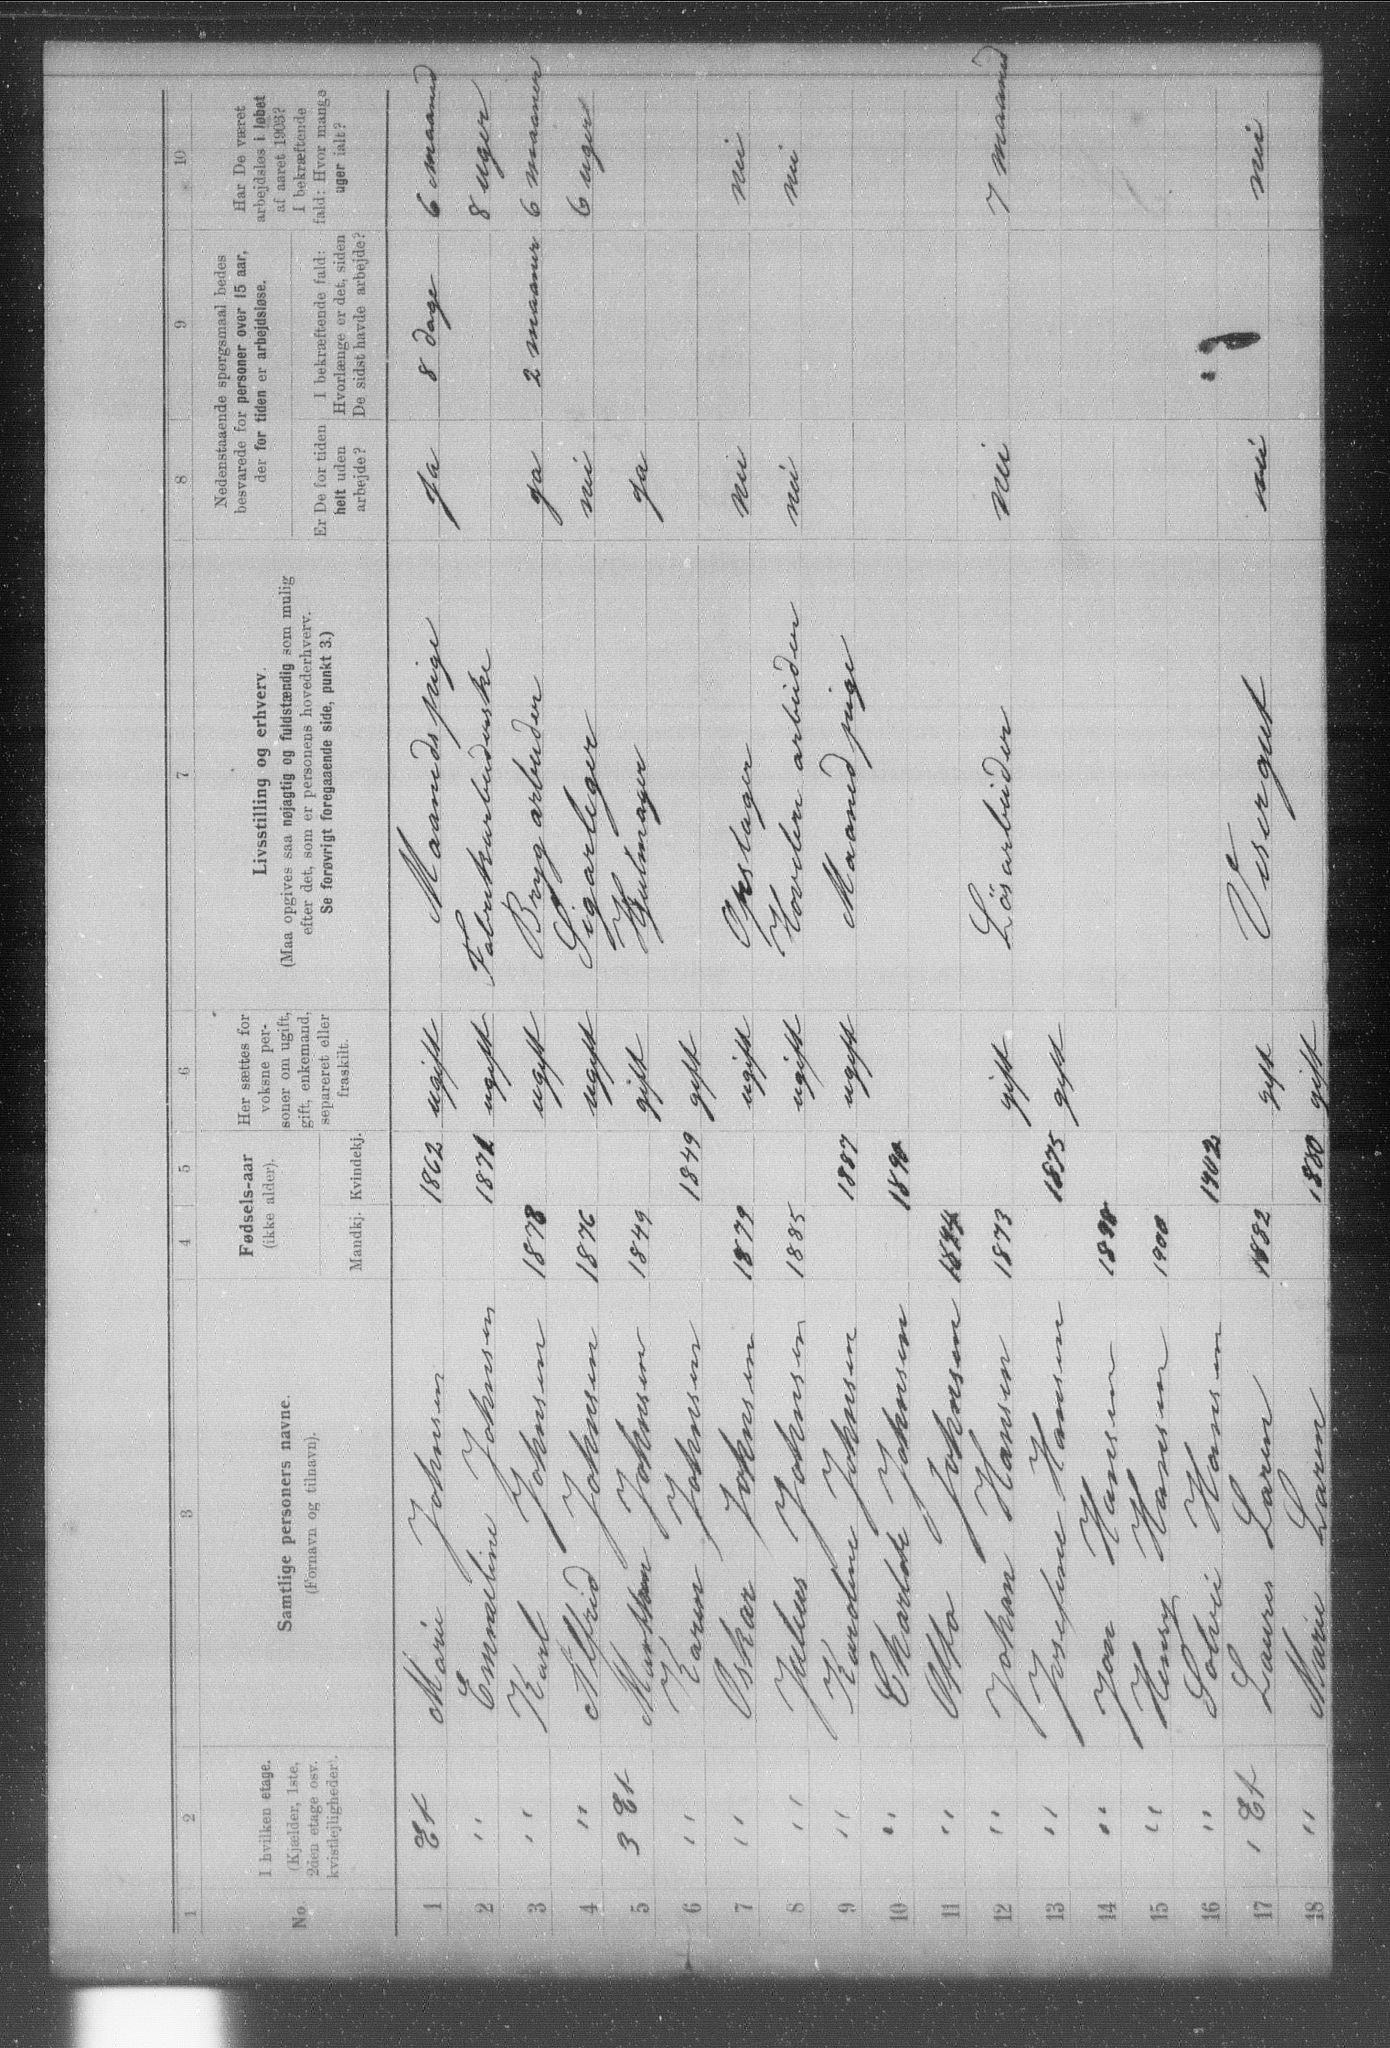 1 2 3 4 5 6 7 8 9 10
No.
I hvilken etage.
(Kjælder, 1ste,
2den etage osv.
kvistlejligheder).
Samtlige personers navne.
(Fornavn og tilnavn).
Fødsels-aar
(ikke alder).
Mandkj. Kvindekj.
Her sættes for
voksne per-
soner om ugift,
gift, enkemand,
separeret eller
fraskilt.
Livsstilling og erhverv.
(Maa opgives saa nøjagtig og fuldstændig som mulig
efter det, som er personens hovederhverv.
Se forøvrigt foregaaende side, punkt 3.)
Nedenstaaende spørgsmaal bedes
besvarede for personer over 15 aar,
der for tiden er arbejdsløse.
Er De for tiden
helt uden
arbejde?
I bekræftende fald:
Hvorlænge er det, siden
De sidst havde arbejde?
Har De været
arbejdsløs i løbet
af aaret 1903?
I bekræftende
fald: Hvor mange
uger ialt?
1 Et Marie Johnsen 1862 ugift Maandspige Ja 8 dage 6 maaned
2 " Emmeline Johnsen ugift Fabrikarbeiderske 8 uger
3 " Karl Johnsen 1878 ugift Brygarbeider Ja 2 maaner 6 maaner
4 " Alfrid Johnsen 1876 ugift Sigarleger nei 6 uger
5 3 Et Johnsen 1849 gift Hjulmager Ja
6 " Karen Johnsen 1849 gift
7 " Oskar Johnsen 1879 ugift nei nei
8 " Julius Johnsen 1885 ugift arbeider nei nei
9 " Karoline Johnsen 1887 ugift Maanedpige
10 " Johnsen 1890
11 " Otto Johnsen
12 " Johan Hansen 1873 gift Løsarbeider nei 7 maaned
13 " Josefine Hansen 1875 gift
14 " Jon Hansen 1898
15 " Henry Hansen 1900
16 " Solvei Hansen 1902
17 1 Et Lauris Larsen 1882 gift Visergut nei nei
18 " Marie Larsen 1880 gift